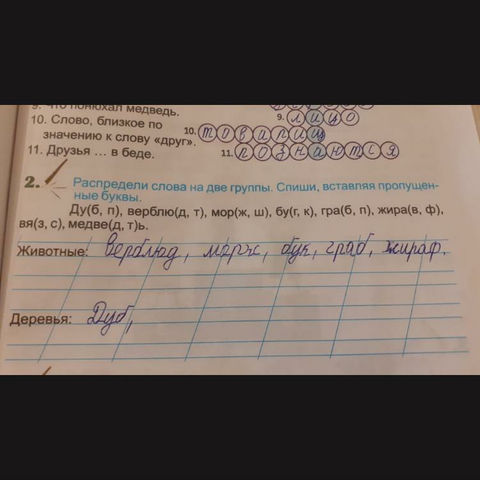 9. Что понюхал медведь.
9. лицо
10. Слово, близкое по
значению к слову «друг».
10. товарищ
11. Друзья ... в беде.
11. познаются
2. Распредели слова на две группы. Спиши, вставляя пропущен-
ные буквы.
Ду(б, п), верблю(д, т), мор(ж, ш), бу(г, к), гра(б, п), жира(в, ф),
вя(з, с), медве(д, т)ь.
Животные: верблюд, морж, бук, граб, жираф.
Деревья: Дуб,